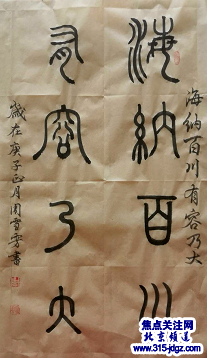 海纳百川有容乃大
海纳百川
有容乃大
岁在庚子正月周雪芳书
焦点关注网
北京频道
www.315-jdgz.com